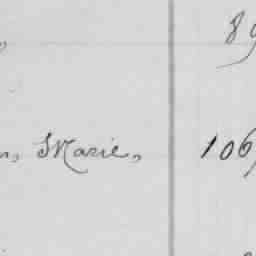 89
n, Marie, 106